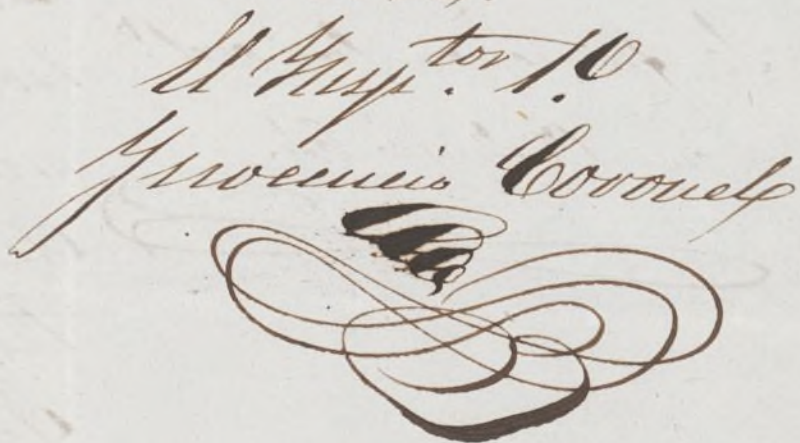 El Ynsp.tor 1.º
Ynocencio Coronel